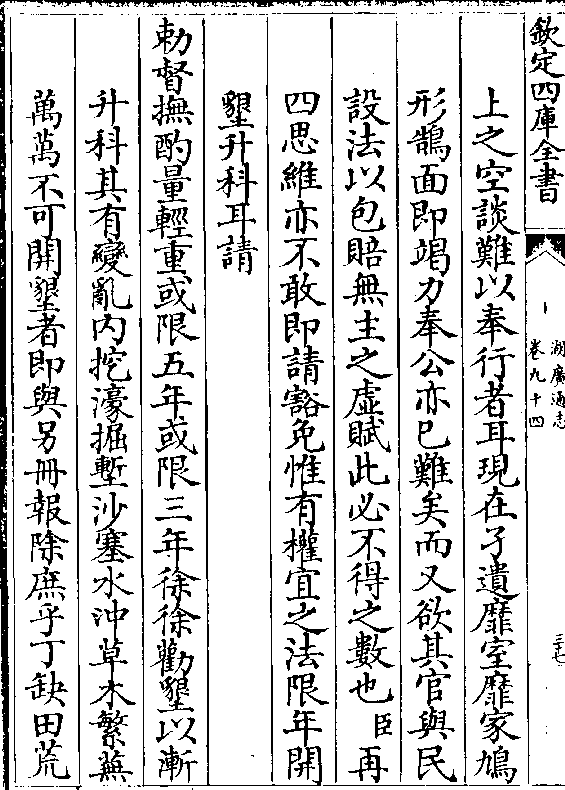 欽定四庫全書
湖廣通志
卷九十四
三十七
上之空談難以奉行者耳現在孑遺靡室靡家鳩
形鵠面即竭力奉公亦已難矣而又欲其官與民
設法以包賠無主之虛賦此必不得之數也臣再
四思維亦不敢即請豁免惟有權宜之法限年開
墾升科耳請
勅督撫酌量輕重或限五年或限三年徐徐勸墾以漸
升科其有變亂内挖濠掘塹沙塞水沖草木繁蕪
萬萬不可開墾者即與另冊報除庶乎丁缺田荒